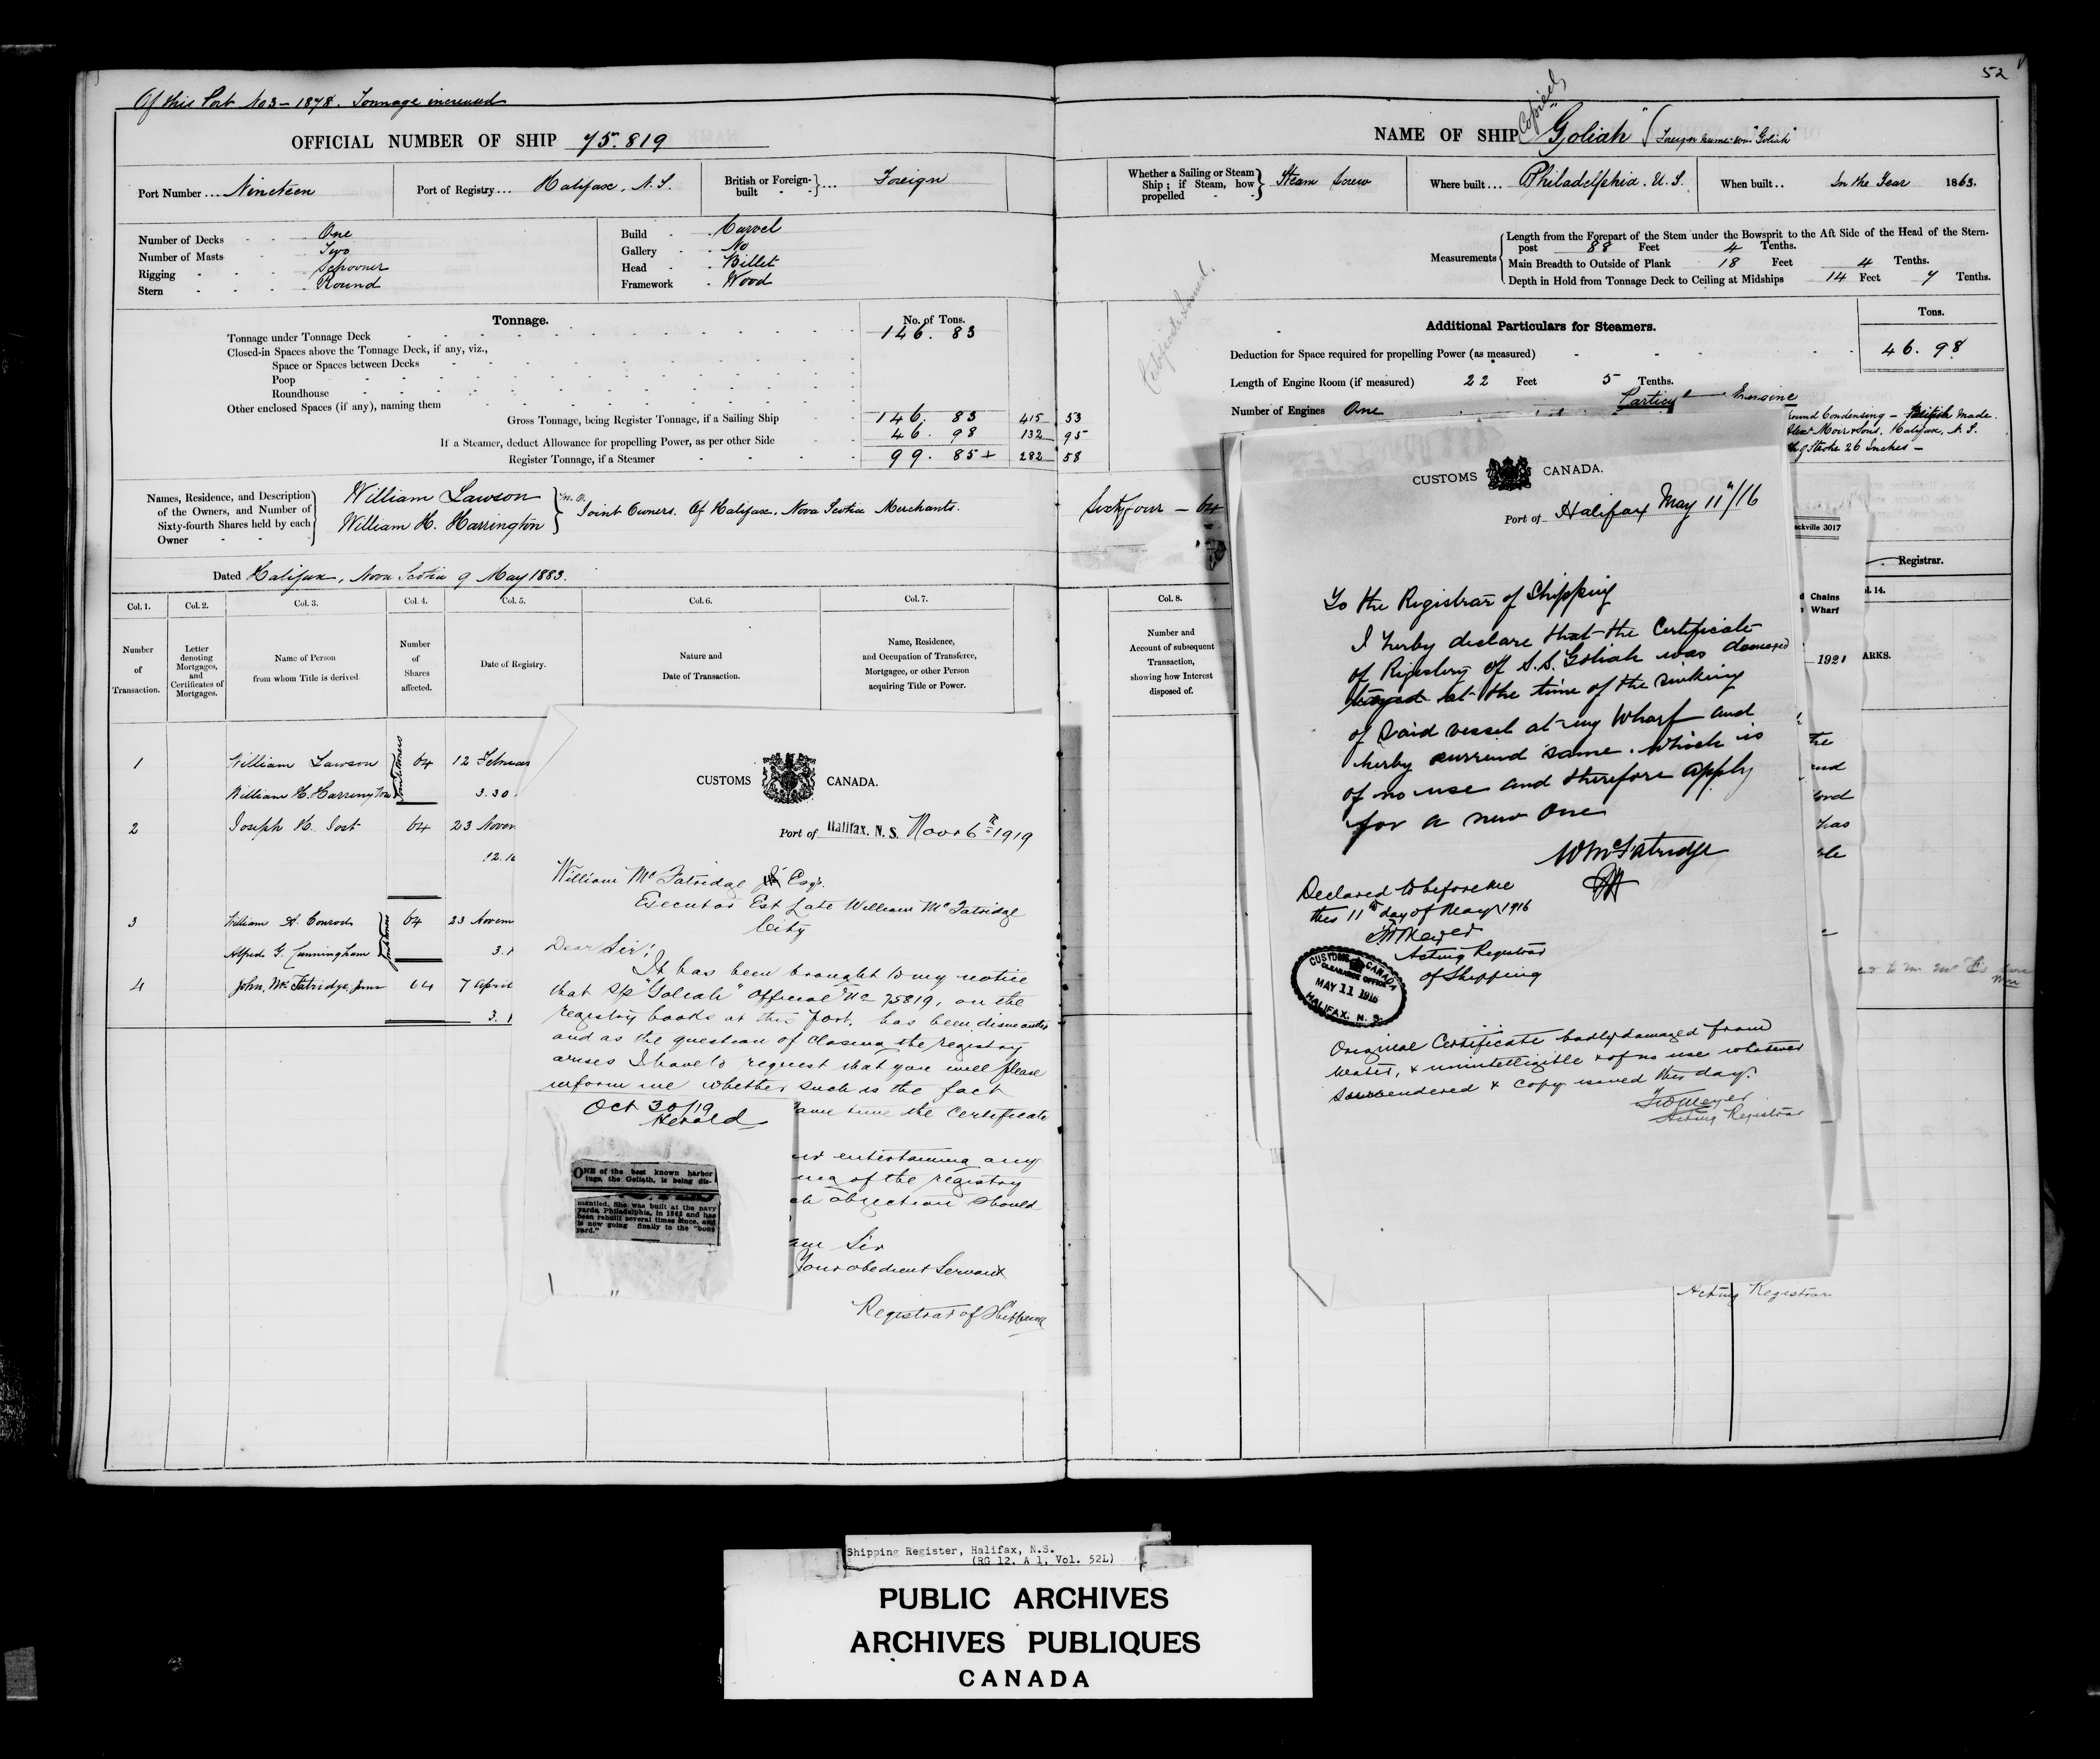 Of this Port No 3 – 1878. Tonnage increased
OFFICIAL NUMBER OF SHIP 75.819
Port Number .... Nineteen
Port of Registry ... Halifax, N.S.
British or Foreign-built } ... Foreign
Number of Decks One
Number of Masts Two
Rigging Schooner
Stern Round
Build Carvel
Gallery No
Head Billet
Framework Wood
Tonnage.
No. of Tons.
Tonnage under Tonnage Deck 146. 83
Closed-in Spaces above the Tonnage Deck, if any, viz.,
Space or Spaces between Decks
Poop
Roundhouse
Other enclosed Spaces (if any), naming them
Gross Tonnage, being Register Tonnage, if a Sailing Ship 146. 83 415 53
If a Steamer, deduct Allowance for propelling Power, as per other Side 46. 98 132 95
Register Tonnage, if a Steamer 99. 85 + 282 58
Names, Residence, and Description of the Owners, and Number of Sixty-fourth Shares held by each Owner
William Lawson
William H. Harrington
} M.O. Joint Owners. Of Halifax. Nova Scotia Merchants.
Dated Halifax, Nova Scotia 9 May 1883.
Col. 1. Col. 2. Col. 3. Col. 4. Col. 5. Col. 6. Col. 7.
Number of Transaction.
Letter denoting Mortgages, and Certificates of Mortgages.
Name of Person from whom Title is derived
Number of Shares affected.
Date of Registry.
Nature and Date of Transaction.
Name, Residence, and Occupation of Transferee, Mortgagee, or other Person acquiring Title or Power.
1 William Lawson 64 12 Februar
William H. Harrington Joint Owners 3.30
2 Joseph H. 64 23 Novem
12.10
3 William H. Conrod 64 23 Novem
Alfred G. Cunningham Joint Owners 3.
4 John Mc Fatridge, Junr 64 7 April
3.
CUSTOMS CANADA.
Port of Halifax, N. S. Novr 6th 1919
William McFatridge Jr Esqr.
Executor Est Late William McFatridge
City
Dear Sir;
It has been brought to my notice
that S/S "Goliah" Official No 75819, on the
registry books at this port, has been dismantled
and as the question of closing the registry
arises I have to request that you will please
inform me whether such is the fact
same time the Certificate
entertaining any
of the registry
ch objection should
am Sir
Your obedient Servant
Registrar of Shipping
Oct 30/19
Herald
ONE of the best known harbor
tugs, the Goliath, is being dis-
mantled. She was built at the navy
yards, Philadelphia, in 1863 and has
been rebuilt several times since, and
is now going finally to the "bone
yard."
52
Copied
NAME OF SHIP "Goliah" (Foreign name was "Goliah"
Whether a Sailing or Steam Ship; if Steam, how propelled } Steam Screw
Where built... Philadelphia. U.S.
When built.. In the Year 1863.
Measurements
Length from the Forepart of the Stem under the Bowsprit to the Aft Side of the Head of the Stern-
post 88 Feet 4 Tenths.
Main Breadth to Outside of Plank 18 Feet 4 Tenths.
Depth in Hold from Tonnage Deck to Ceiling at Midships 14 Feet 7 Tenths.
Certificate Issued.
Additional Particulars for Steamers.
Tons.
Deduction for Space required for propelling Power (as measured) 46. 98
Length of Engine Room (if measured) 22 Feet 5 Tenths.
Number of Engines One
Engine
ound Condensing – British Made.
Alexr Moir & Sons, Halifax, N.S.
Stroke 26 Inches –
Sixty four – 64
ackville 3017
Registrar.
Col. 8.
l. 14.
Number and Account of subsequent Transaction, showing how Interest disposed of.
d Chains
Wharf
1921
ARKS.
CUSTOMS CANADA.
Port of Halifax May 11th/16
To the Registrar of Shipping
I herby declare that the Certificate
of Registery of S.S. Goliah was damaged
at the time of the sinking
of said vessel at my Wharf and
herby surrend same. which is
of no use and therefore apply
for a new one
Wm McFatridge
Declared to before me
this 11th day of May 1916
Acting Registrar
of Shipping
CUSTOMS CANADA
CLEARANCE OFFICE
MAY 11 1916
HALIFAX, N. S.
Original Certificate badly damaged from
water, & unintelligible & of no use whatever
Surrendered & copy issued this day.
Meyer
Acting Registrar
Acting Registrar
Shipping Register, Halifax, N.S.
(RG 12, A 1, Vol. 52L)
PUBLIC ARCHIVES
ARCHIVES PUBLIQUES
CANADA